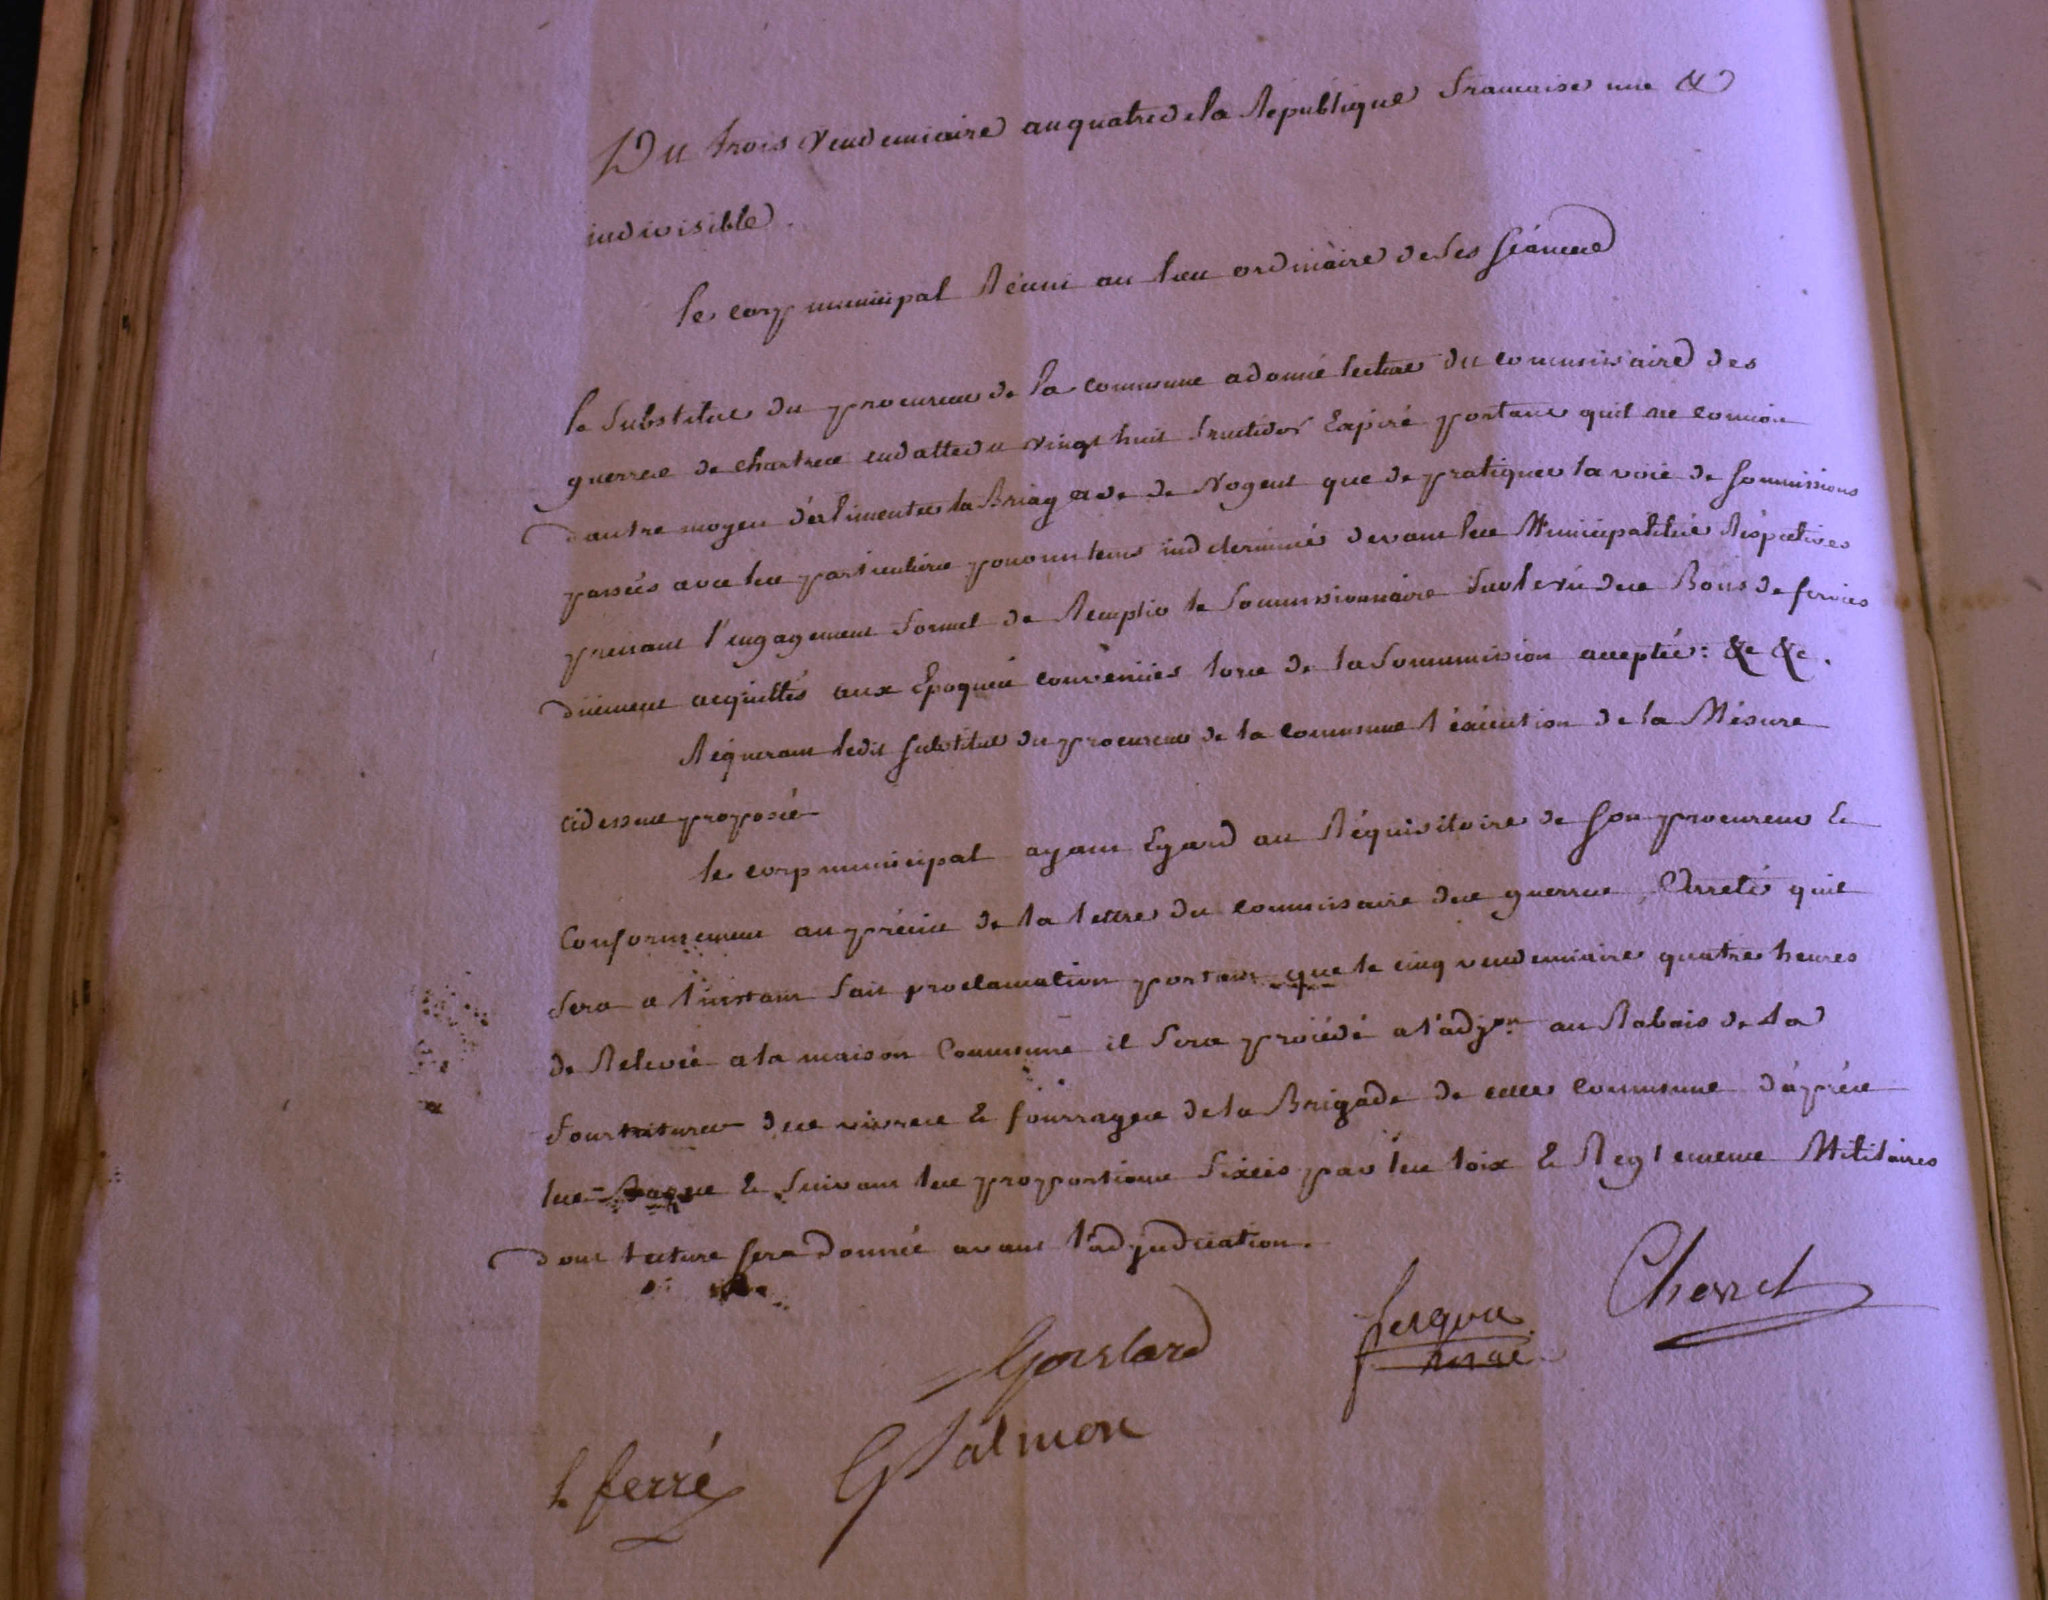 Du trois Vendemiaire au quatre de la République francaise une &
indivisible.
le corp municipal Réuni au lieu ordinaire de ses séances
le substitut du procureur de la commune a donné lecture du commissaire des
guerres de chartres en datte du vingt huit fructidor Expiré portant quil ne connoit
dautre moyen d'alimenter la Briagade de Nogent que de pratiquer la voie de soumissions
passées avec les particuliers pour un tems indeterminé devant les Municipalités Réspectives
prenant l'engagement formel de Remplir le soumissionnaire sur le vû des Bons de fervices
duement acquittés aux Epoques convenües lors de la soummission acceptée : &c &c.
Réquerant ledit substitut du procureur de la commune l'éxécution de la Mésure
cidessus proposée
le corp municipal ayant Egard au Réquisitoire de son procureur &
Conformement au précis de la lettre du commissaire des guerres, Arrete quil
sera a l'instant fait proclamation portant que le cinq vendemiaire quatre heures
de Relevée a la maison Commune il sera procédé a l'adjon au Rabais de la
fourniture des vivres & fourrages de la Brigade de cette commune d'aprés
les & suivant les proportions fixées par les loix & Reglements Militaires
dont lecture sera donnée avant l'adjudication.
Goislard
Chevret
l. ferré
G Salmon